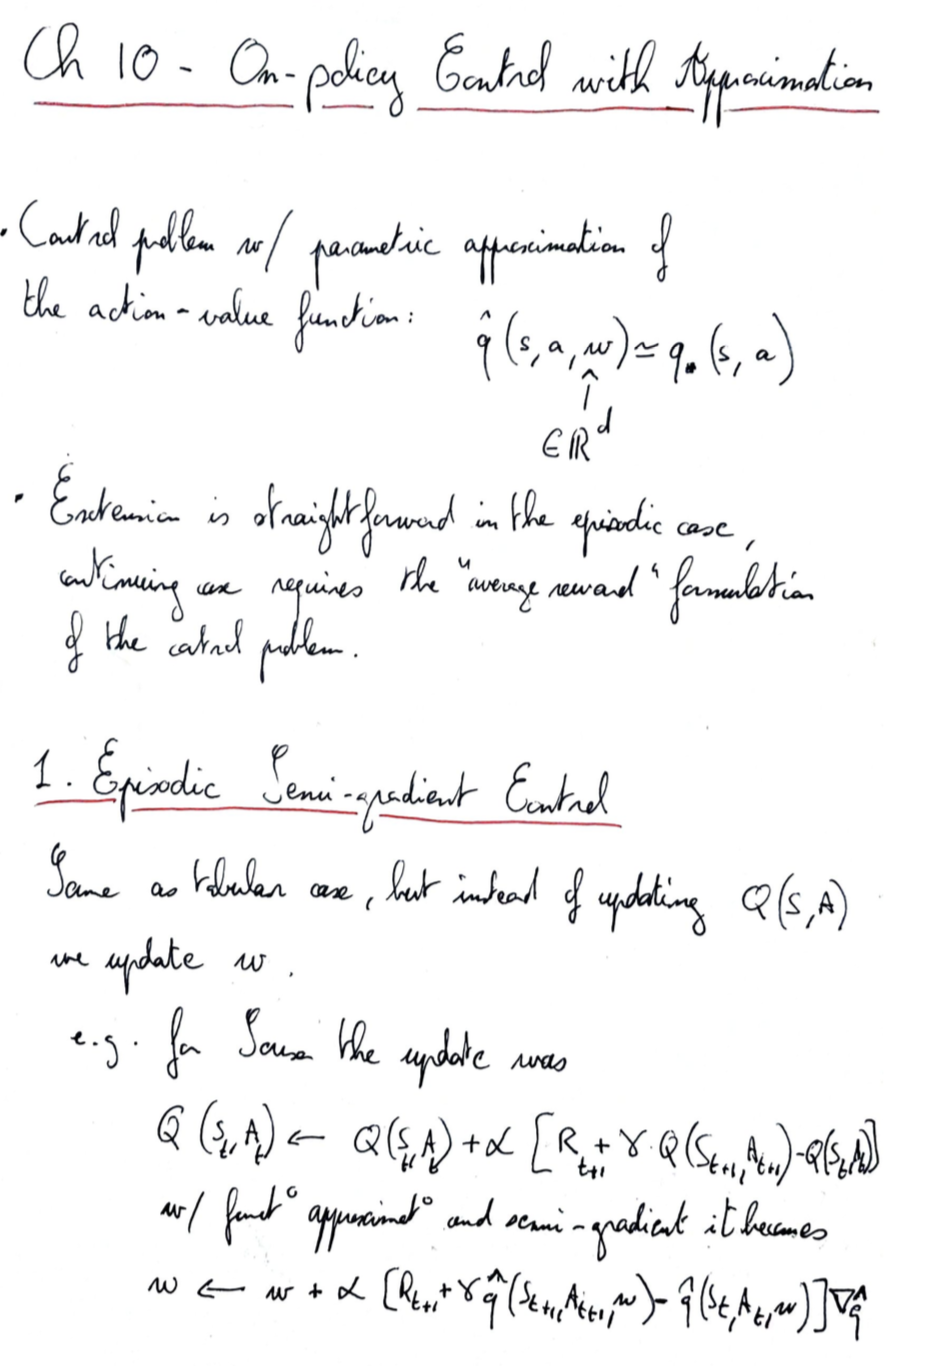 Ch 10 - On-policy Control with Approximation
• Control problem w/ parametric approximation of
the action-value function: q̂(s, a, w) ≃ q*(s, a)
↑
∈ ℝ^d
• Extension is straightforward in the episodic case,
continuing case requires the "average reward" formulation
of the control problem.
1. Episodic Semi-gradient Control
Same as tabular case, but instead of updating Q(S,A)
we update w.
e.g. for Sarsa the update was
Q(S_t, A_t) ← Q(S_t, A_t) + α [R_{t+1} + γ·Q(S_{t+1}, A_{t+1}) - Q(S_t, A_t)]
w/ funct° approximat° and semi-gradient it becomes
w ← w + α [R_{t+1} + γ q̂(S_{t+1}, A_{t+1}, w) - q̂(S_t, A_t, w)] ∇q̂